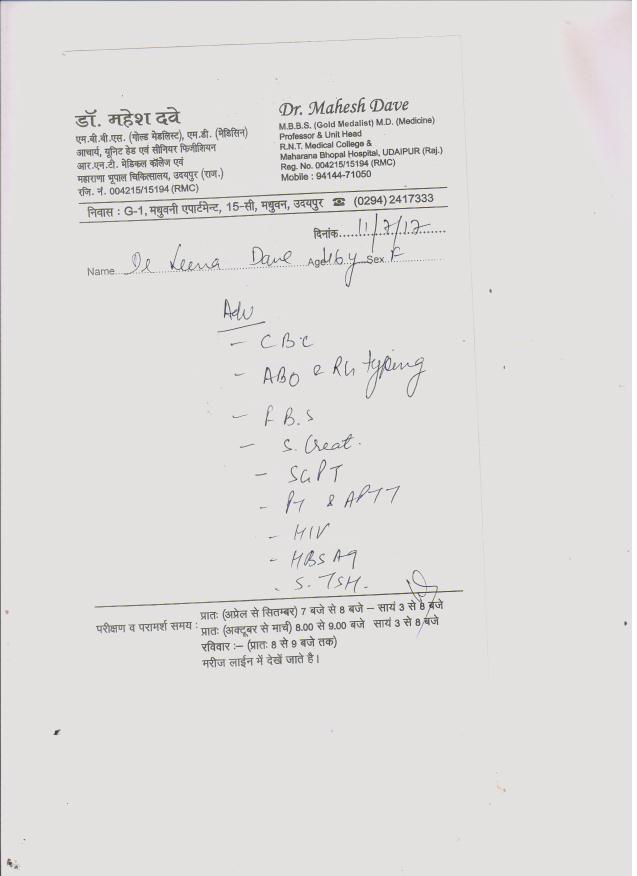 डॉ. महेश दवे
एम.बी.बी.एस. (गोल्ड मेडलिस्ट), एम.डी. (मेडिसिन)
आचार्य, यूनिट हेड एवं सीनियर फिजीशियन
आर.एन.टी. मेडिकल कॉलेज एवं
महाराणा भूपाल चिकित्सालय, उदयपुर (राज.)
रजि. नं. 004215/15194 (RMC)
Dr. Mahesh Dave
M.B.B.S. (Gold Medalist) M.D. (Medicine)
Professor & Unit Head
R.N.T. Medical College &
Maharana Bhopal Hospital, UDAIPUR (Raj.)
Reg. No. 004215/15194 (RMC)
Mobile : 94144-71050
निवास : G-1, मधुवनी एपार्टमेन्ट, 15-सी, मधुवन, उदयपुर ☎ (0294) 2417333
दिनांक.....11/7/17
Name... Leena Dave Age 46 y Sex F
Adv
- CBC
- ABO & Rh typing
- F B.S
- S. Creat.
- SGPT
- PT & APTT
- HIV
- HBSAg
- S. TSH.
परीक्षण व परामर्श समय : प्रातः (अप्रेल से सितम्बर) 7 बजे से 8 बजे – सायं 3 से 8 बजे
प्रातः (अक्टूबर से मार्च) 8.00 से 9.00 बजे सायं 3 से 8 बजे
रविवार :– (प्रातः 8 से 9 बजे तक)
मरीज लाईन में देखें जाते है।